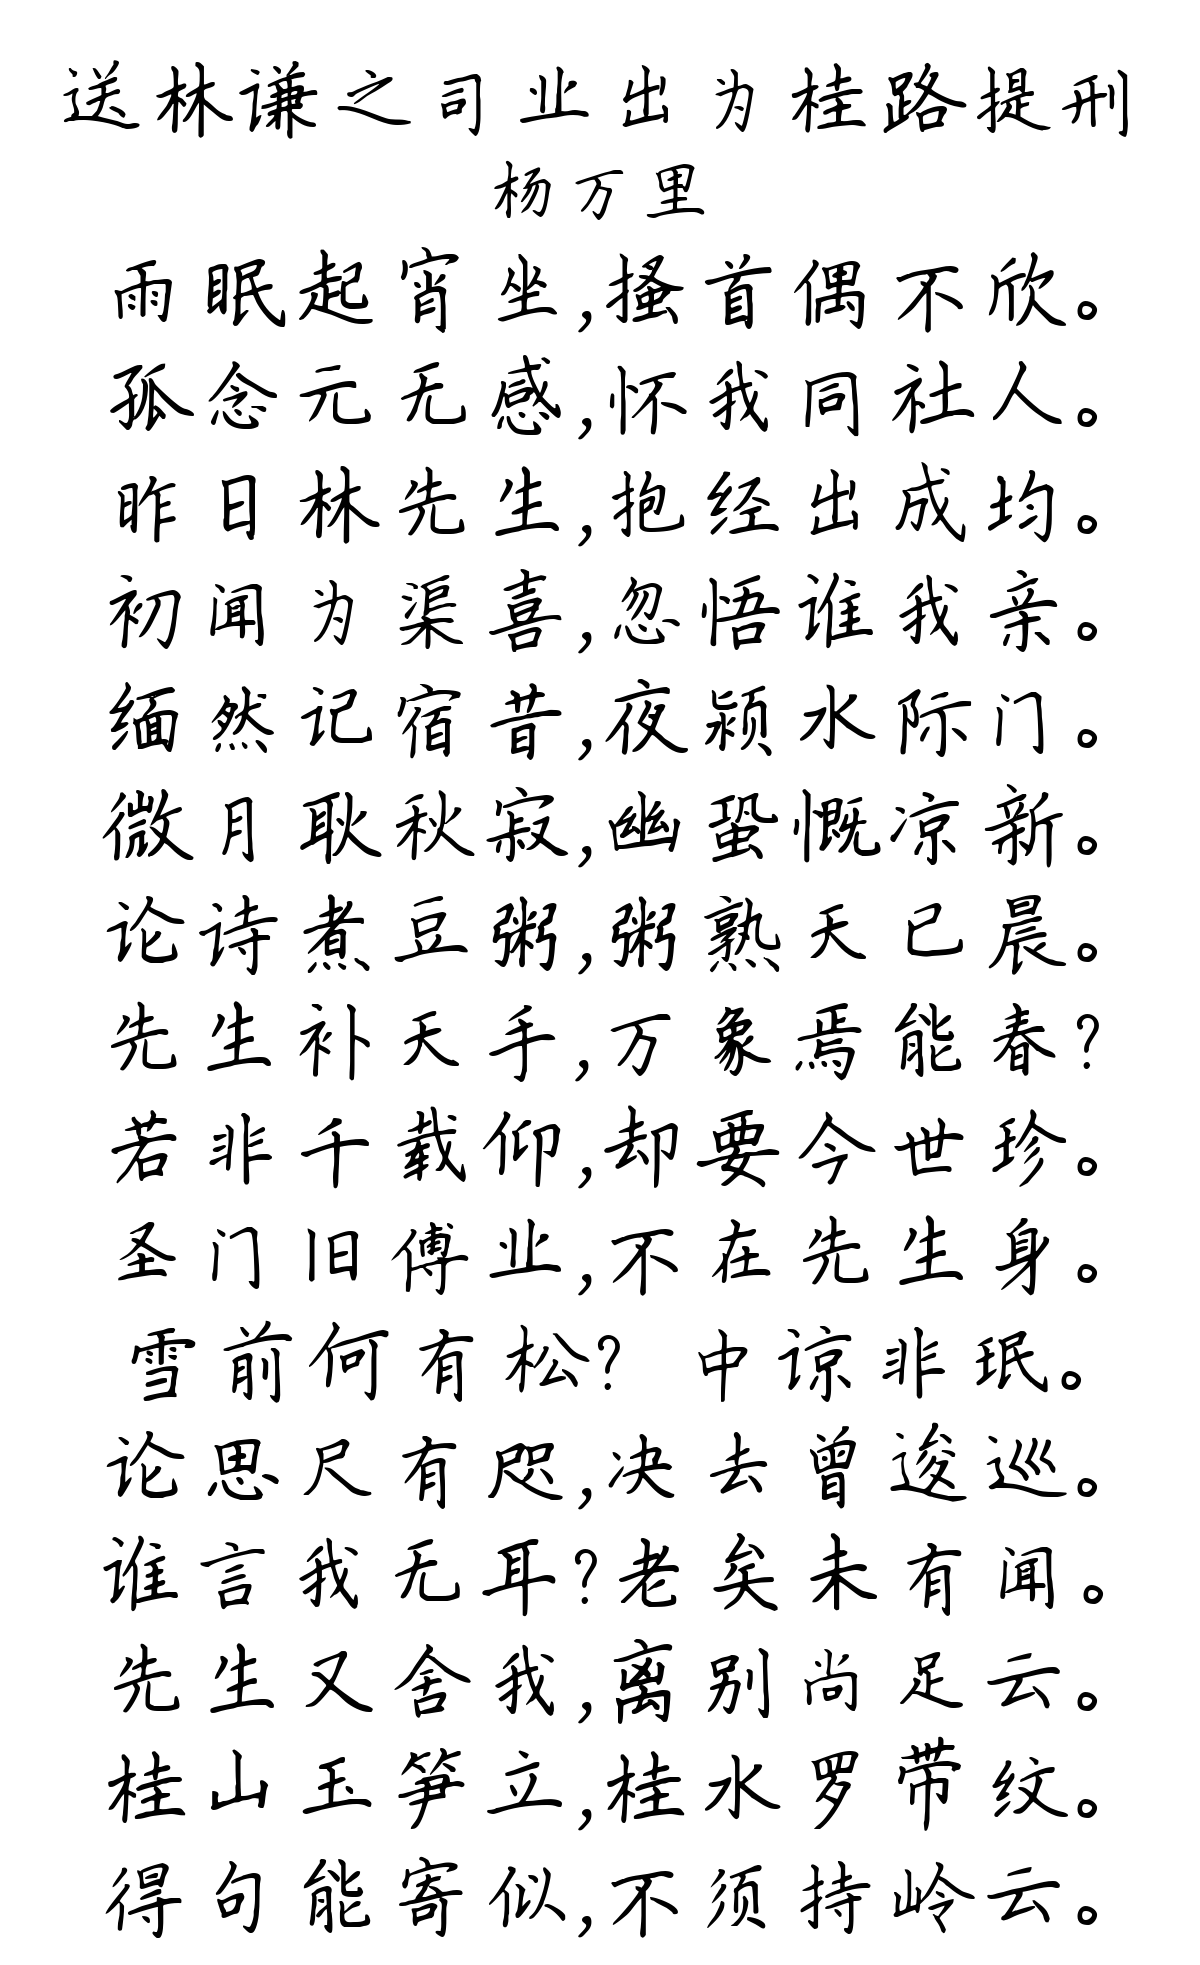 送林谦之司业出为桂路提刑
杨万里
雨眠起宵坐,搔首偶不欣。
孤念元无感,怀我同社人。
昨日林先生,抱经出成均。
初闻为渠喜,忽悟谁我亲。
缅然记宿昔,夜颍水际门。
微月耿秋寂,幽蛩慨凉新。
论诗煮豆粥,粥熟天已晨。
先生补天手,万象焉能春?
若非千载仰,却要今世珍。
圣门旧傅业,不在先生身。
雪前何有松? 中谅非珉。
论思尺有咫,决去曾逡巡。
谁言我无耳?老矣未有闻。
先生又舍我,离别尚足云。
桂山玉笋立,桂水罗带纹。
得句能寄似,不须持岭云。